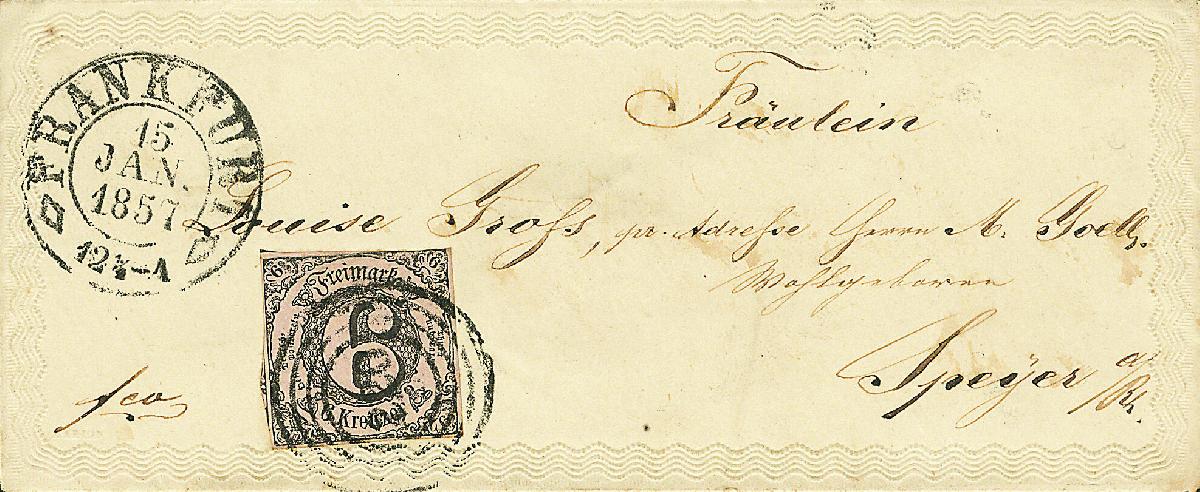 FRANKFURT
15
JAN.
1857
12½-1
Fräulein
Louise Groß, pr. Adresse Herrn M.
Wohlgeboren
Speÿer a/Rh.
fco
Freimarke
6
6 Kreuzer